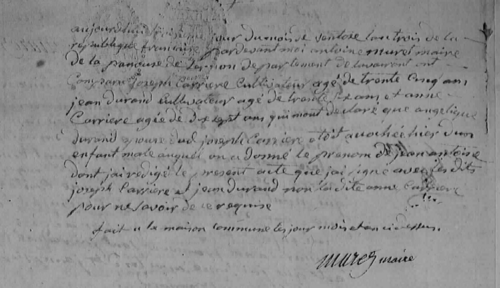 aujourdhui jour du mois de ventose lan trois de la
republique francaise pardevant moi antoine muret maire
de la de departement de ont
Joseph Carriere cultivateur agé de trente cinq ans
jean durand cultivateur agé de trente six ans et anne
Carriere agée de dix sept ans qui mont declaré que angelique
durand epouse dud joseph Carriere a eté acouchée hier dun
enfant male auquel on a donné le prenom de jean antoine
dont jai redigé le present acte que jai signé avec lesdits
joseph Carriere et jean durand non ladite anne Carriere
pour ne savoir de ce requise
fait a la maison commune les jour mois et an ci dessus
muret maire